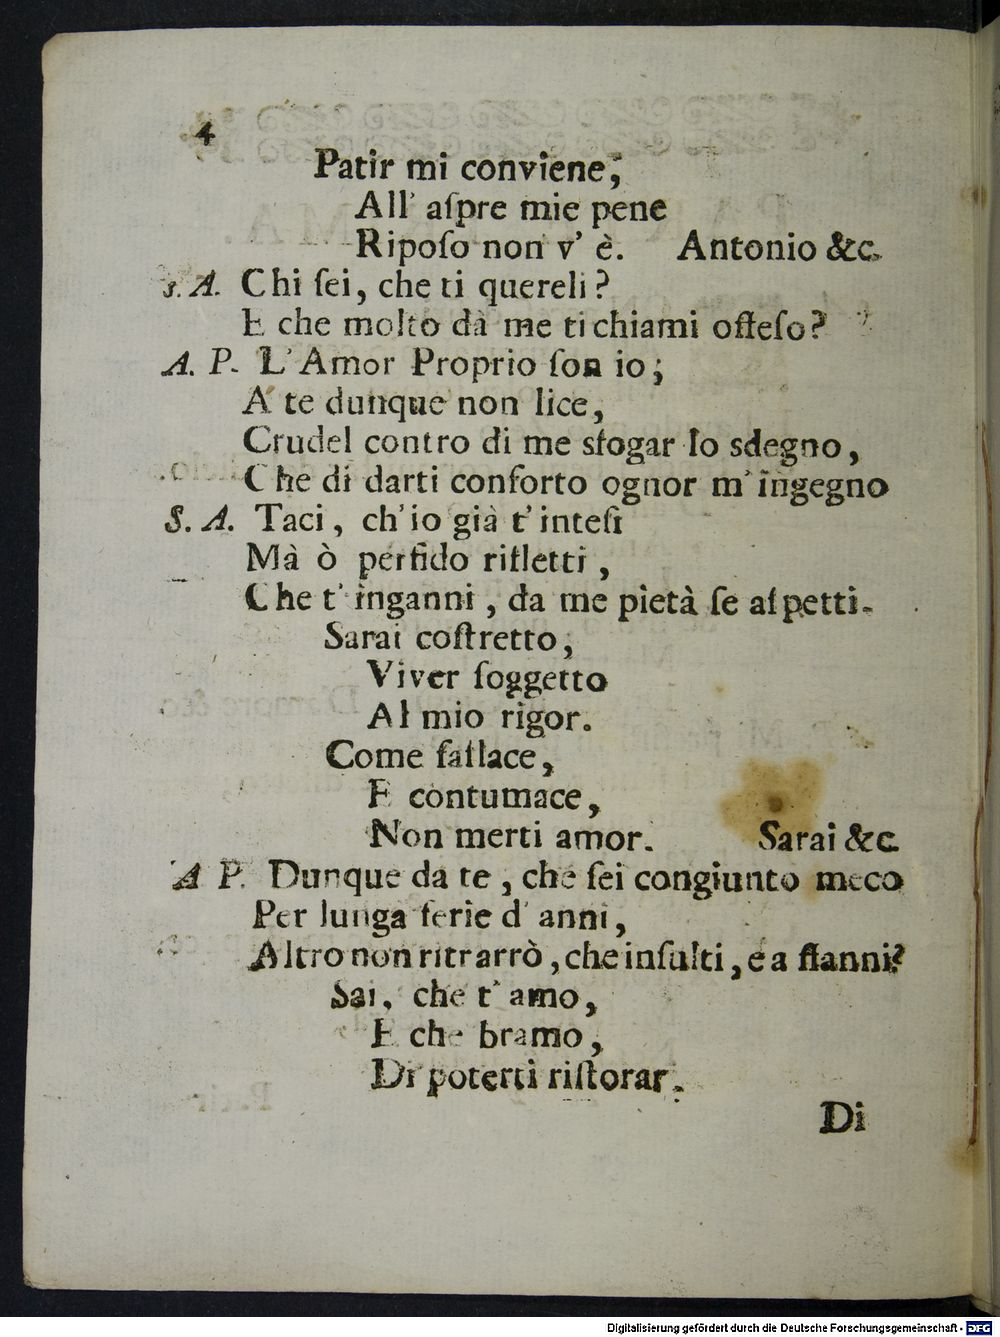 4
Patir mi conviene,
All' aſpre mie pene
Ripoſo non v' è. Antonio &c.
s. A. Chi ſei, che ti quereli?
E che molto dà me ti chiami offeſo?
A. P. L' Amor Proprio ſon io;
A te dunque non lice,
Crudel contro di me sfogar lo sdegno,
Che di darti conforto ognor m' ingegno
S. A. Taci, ch' io già t' inteſi
Mà ò perfido rifletti,
Che t' inganni, da me pietà ſe aſpetti.
Sarai coſtretto,
Viver ſoggetto
Al mio rigor.
Come fallace,
E contumace,
Non merti amor. Sarai &c.
A P. Dunque da te, che ſei congiunto meco
Per lunga ſerie d' anni,
Altro non ritrarrò, che inſulti, e a ffanni?
Sai, che t' amo,
E che bramo,
Di poterti riſtorar.
Di
Digitalisierung gefördert durch die Deutsche Forschungsgemeinschaft - DFG